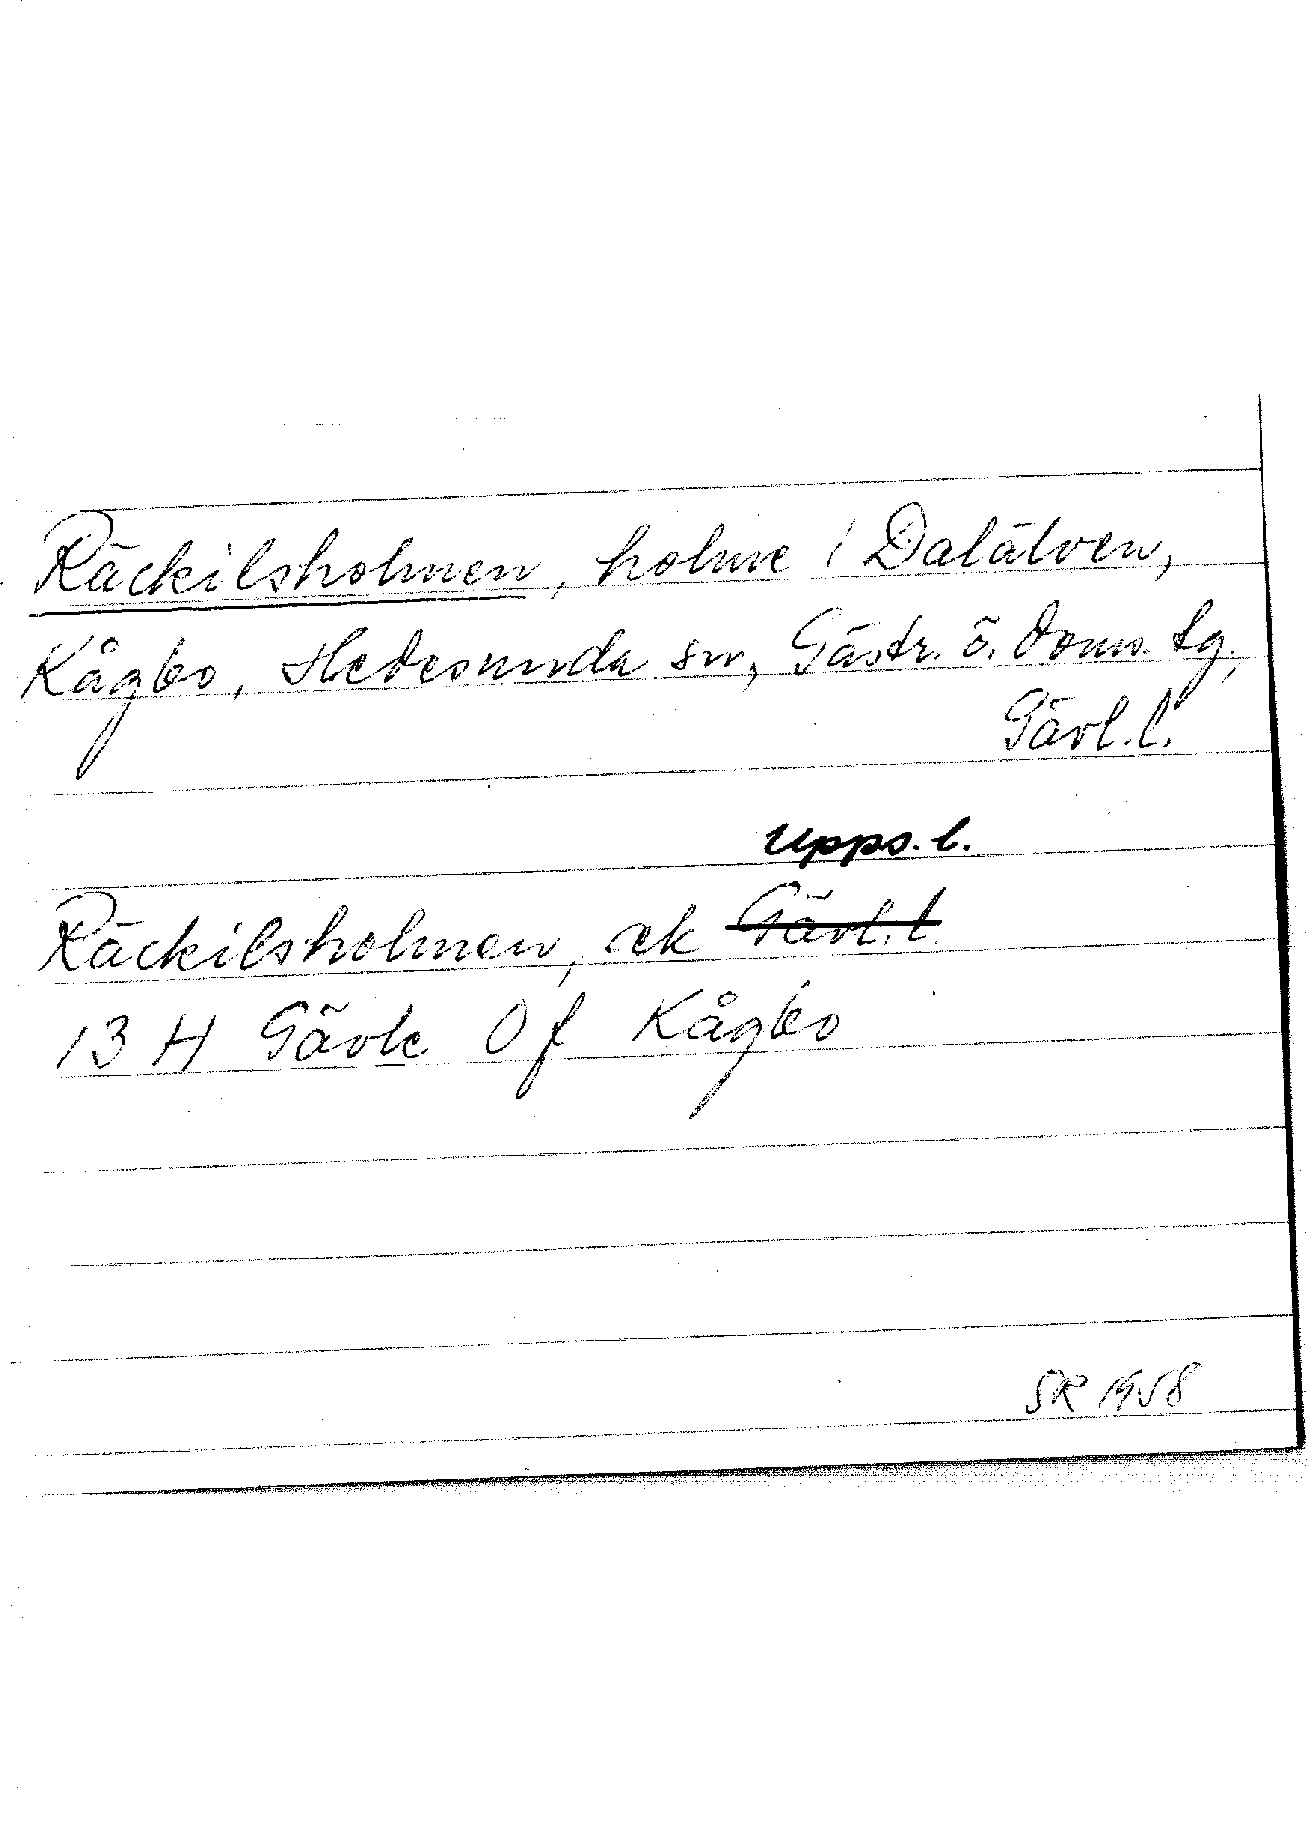 Räckilsholmen, holme i Dalälven,
Kågbo, Hedesunda sn, Gästr. ö. doms. tg,
Gävl. l.
Upps. l.
Räckilsholmen, ek Gävl. l.
13 H Gävle 0 f Kågbo
SR 1958